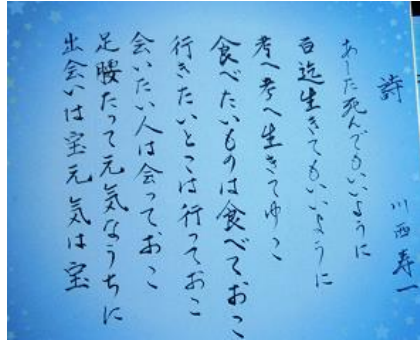 詩
川西寿一
あした死んでもいいように
百迄生きてもいいように
考へ考へ生きてゆこ
食べたいものは食べておこ
行きたいとこは行っておこ
会いたい人は会っておこ
足腰たって元気なうちに
出会いは宝元気は宝